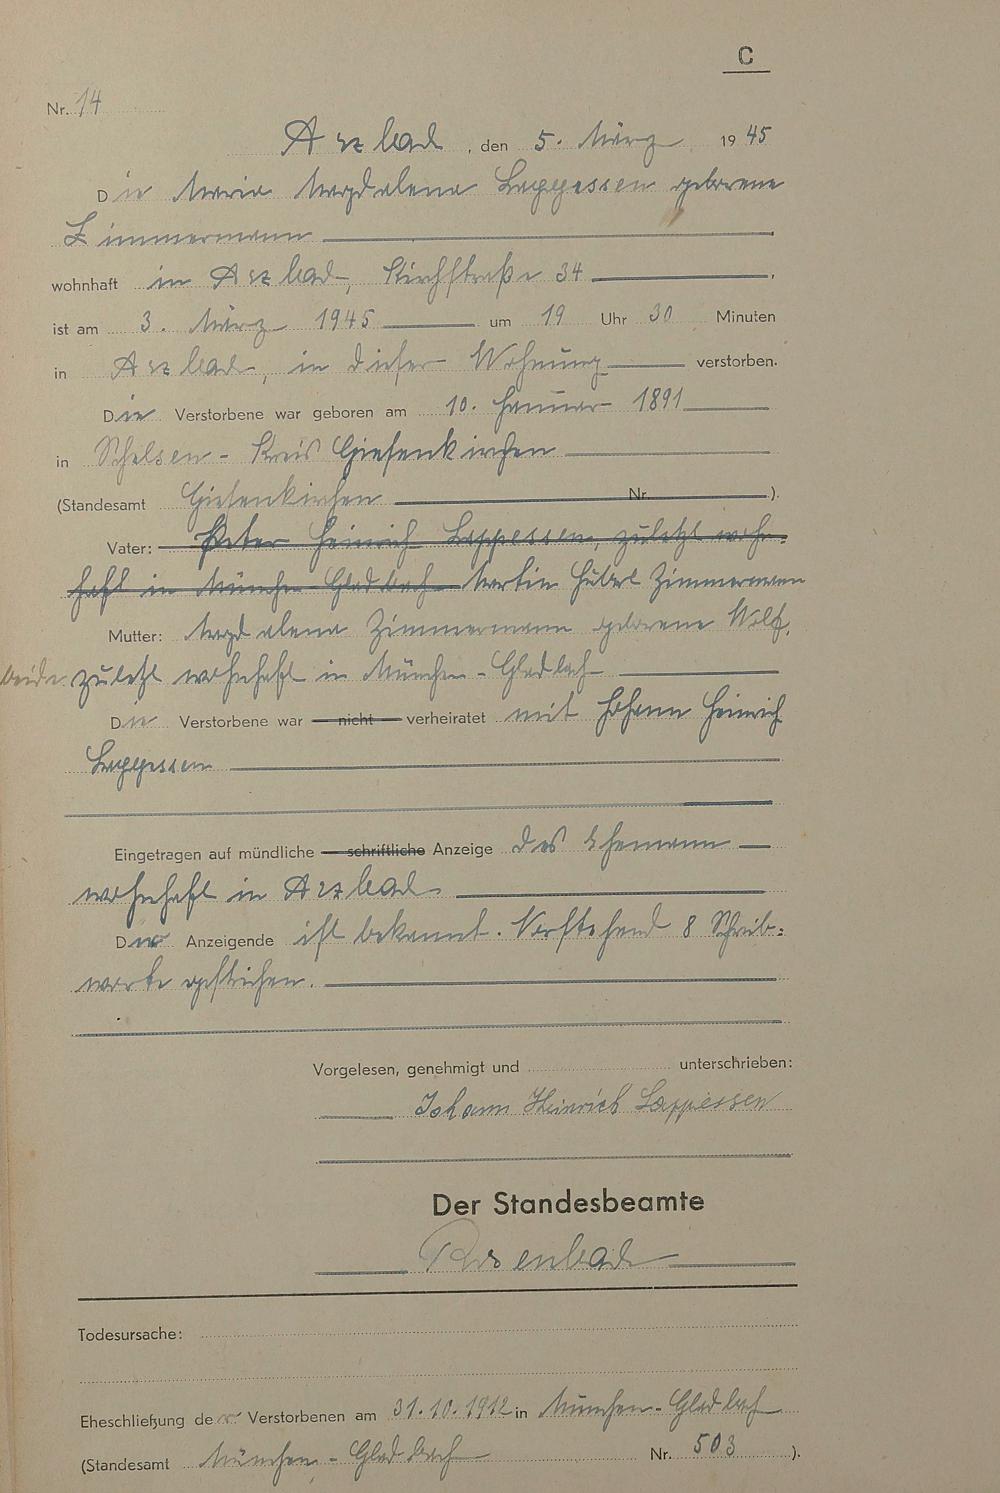 C
Nr. 14
Arzbach, den 5. März 1945
Die Maria Magdalena Lappessen geborene
Zimmermann
wohnhaft in Arzbach, Kirchstraße 34
ist am 3. März 1945 um 19 Uhr 30 Minuten
in Arzbach, in dieser Wohnung verstorben.
Die Verstorbene war geboren am 10. Januar 1891
in Schelsen - Kreis Giesenkirchen
(Standesamt Giesenkirchen Nr. ).
Vater: Peter Heinrich Lappessen, zuletzt wohn-
haft in München Gladbach Martin Hubert Zimmermann
Mutter: Magdalena Zimmermann geborene Wolf,
beide zuletzt wohnhaft in München-Gladbach
Die Verstorbene war nicht verheiratet mit Johann Heinrich
Lappessen
Eingetragen auf mündliche schriftliche Anzeige des Ehemann
wohnhaft in Arzbach
Der Anzeigende ist bekannt. Vorstehend 8 Schreib-
worte gestrichen.
Vorgelesen, genehmigt und unterschrieben:
Johann Heinrich Lappessen
Der Standesbeamte
Todesursache:
Eheschließung der Verstorbenen am 31.10.1912 in München-Gladbach
(Standesamt München-Gladbach Nr. 503 ).